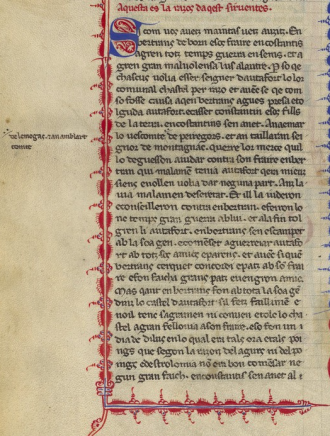 Aqesta es la razos daqest siruentes.
Si com uos auetz maintas uetz auzit. En
bertrans de born esos fraire en costantis
agren totz temps guerra ensems. et a
gren gran maluolensa lus alautre. p so qe
chascus uolia esser seigner dautafort lo lor
comunal chastel per razo et aue se qe com
so fosse causa qen bertrans agues presa eto
lguda autafort. ecassat constanti esos fills
de la terra. encostantis sen anet. Anaemar
lo uescomte de peiregors. et an taillaran sei
gnor de montaignac. querre lor merce quil
lo deguessen aiudar contra son fraire enber
tran qui malamen tenia autafort qera mieitz
sieus enoillen uolia dar neguna part. Anz la
uia malamen deseretat. Et ill la iuderon
econseilleron contra enbertran. efeiron lo
nc temps gran guerra ab lui. et ala fin tol
gren li autafort. enbertrans sen escampet
ab la soa gen. ecomenset aguerreiar autafo
rt ab totz ses amics eparens. et auenc si qen
bertrans cerquet concordi epatz ab so frai
re efon faicha granz patz euengron amic.
Mas qant en bertrans fon ab tota la soa ge
dinz lo castel dautafort si fetz faillimen e
noil tenc sagramen ni conuen etolc lo cha
stel agran fellonia a son fraire. eso fon un
dia de dilus enlo qual era tals ora etals poi
ngs que segon la razon del agurs ni del po
ingz edestrolomia no era bon comensar ne
gun gran faich. encostantis sen anet al r
de lemogas. ran amblart
comte